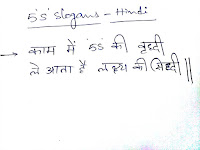 5'S' Slogans - Hindi
→ काम में '5S' की वृद्दी
ले आता है लक्ष्य की सिद्दी ||